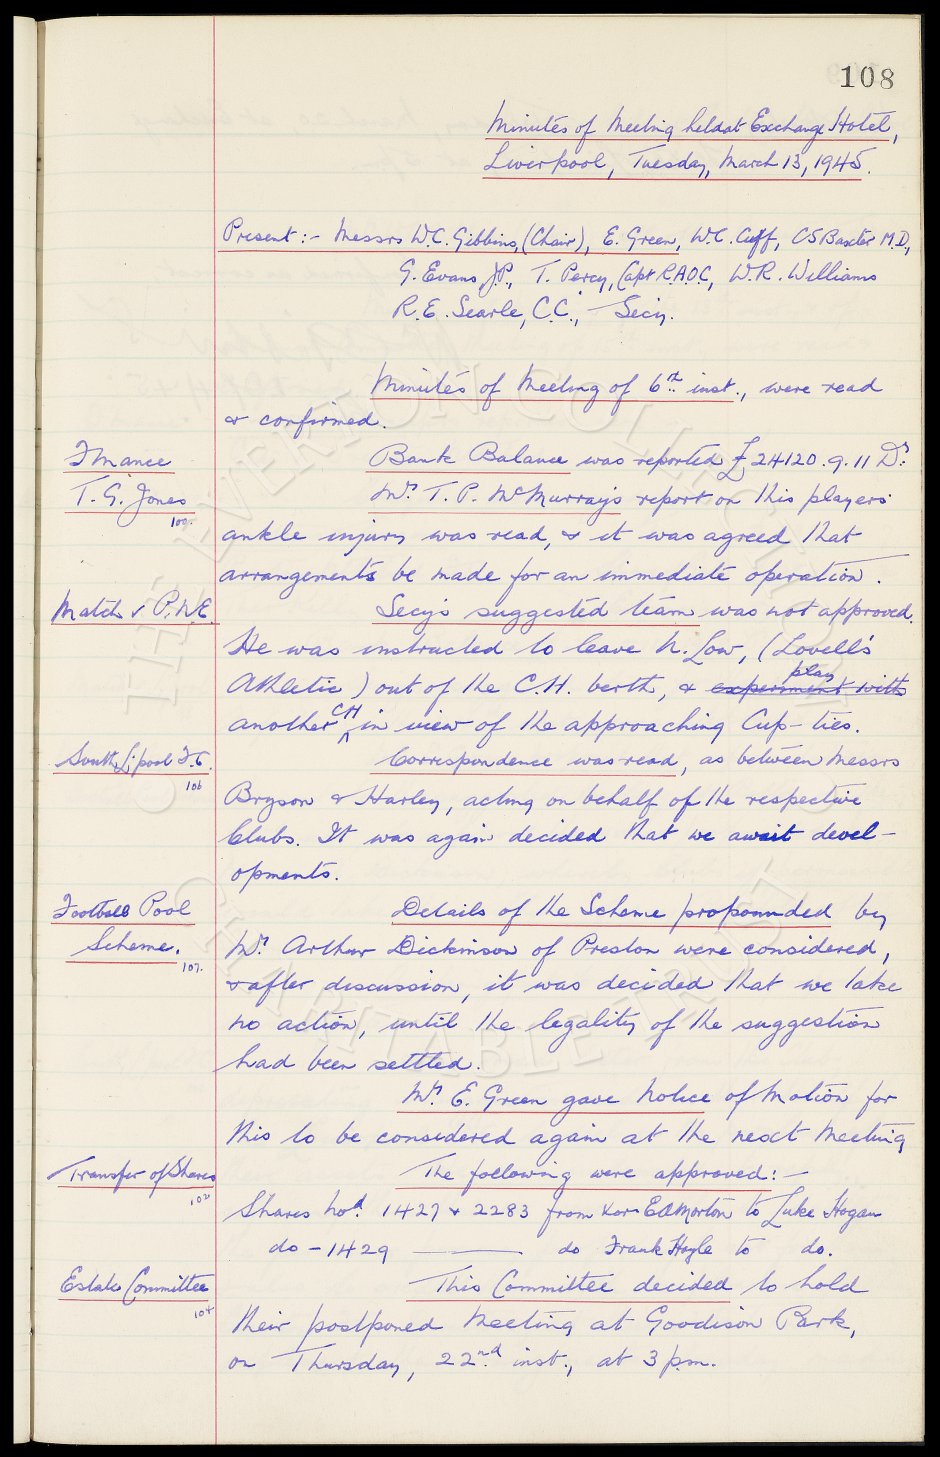 108
Minutes of Meeting held at Exchange Hotel,
Liverpool, Tuesday, March 13, 1945.
Present :- Messrs W.C. Gibbins, (Chair), E. Green, W.C. Cuff, C S Baxter M.D.,
G. Evans, J.P., T. Percy, Capt R.A.O.C., W.R. Williams
R.E. Searle, C.C., - Secy.
Minutes of Meeting of 6th inst., were read
& confirmed.
Finance
Bank Balance was reported £24120.9.11 Dr
T. G. Jones
100.
Mr. T. P. McMurray's report on this players'
ankle injury was read, & it was agreed that
arrangements be made for an immediate operation.
Match v P.N.E.
Secy's suggested team was not approved.
He was instructed to leave N. Low, (Lovell's
Athletic) out of the C.H. berth, & experiment with play
another CH in view of the approaching Cup-ties.
South L'pool F.C.
106
Correspondence was read, as between Messrs
Bryson & Harley, acting on behalf of the respective
Clubs. It was again decided that we await devel-
opments.
Football Pool
Scheme.
107.
Details of the Scheme propounded by
Mr. Arthur Dickinson of Preston were considered,
& after discussion, it was decided that we take
no action, until the legality of the suggestion
had been settled.
Mr. E. Green gave Notice of Motion for
this to be considered again at the next Meeting
Transfer of Shares
102
The following were approved :-
Shares Nos. 1427 & 2283 from Exor E A Morton to Luke Hogan
do - 1429 — do Frank Hoyle to do.
Estate Committee
104
This Committee decided to hold
their postponed Meeting at Goodison Park,
on Thursday, 22nd inst., at 3 p.m.
THE EVERTON COLLECTION
CHARITABLE TRUST